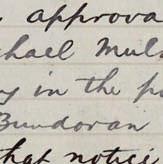 approva
chael Mul
in the p
Bundoran
that notic